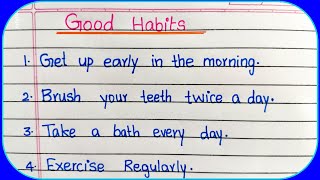 Good Habits
1. Get up early in the morning.
2. Brush your teeth twice a day.
3. Take a bath every day.
4. Exercise Regularly.